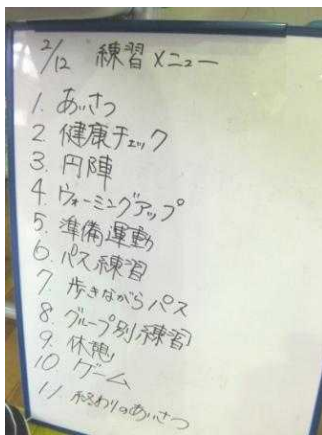 2/12 練習メニュー
1. あいさつ
2 健康チェック
3. 円陣
4. ウォーミングアップ
5. 準備運動
6. パス練習
7. 歩きながらパス
8. グループ別練習
9. 休憩
10. ゲーム
11. 終わりのあいさつ